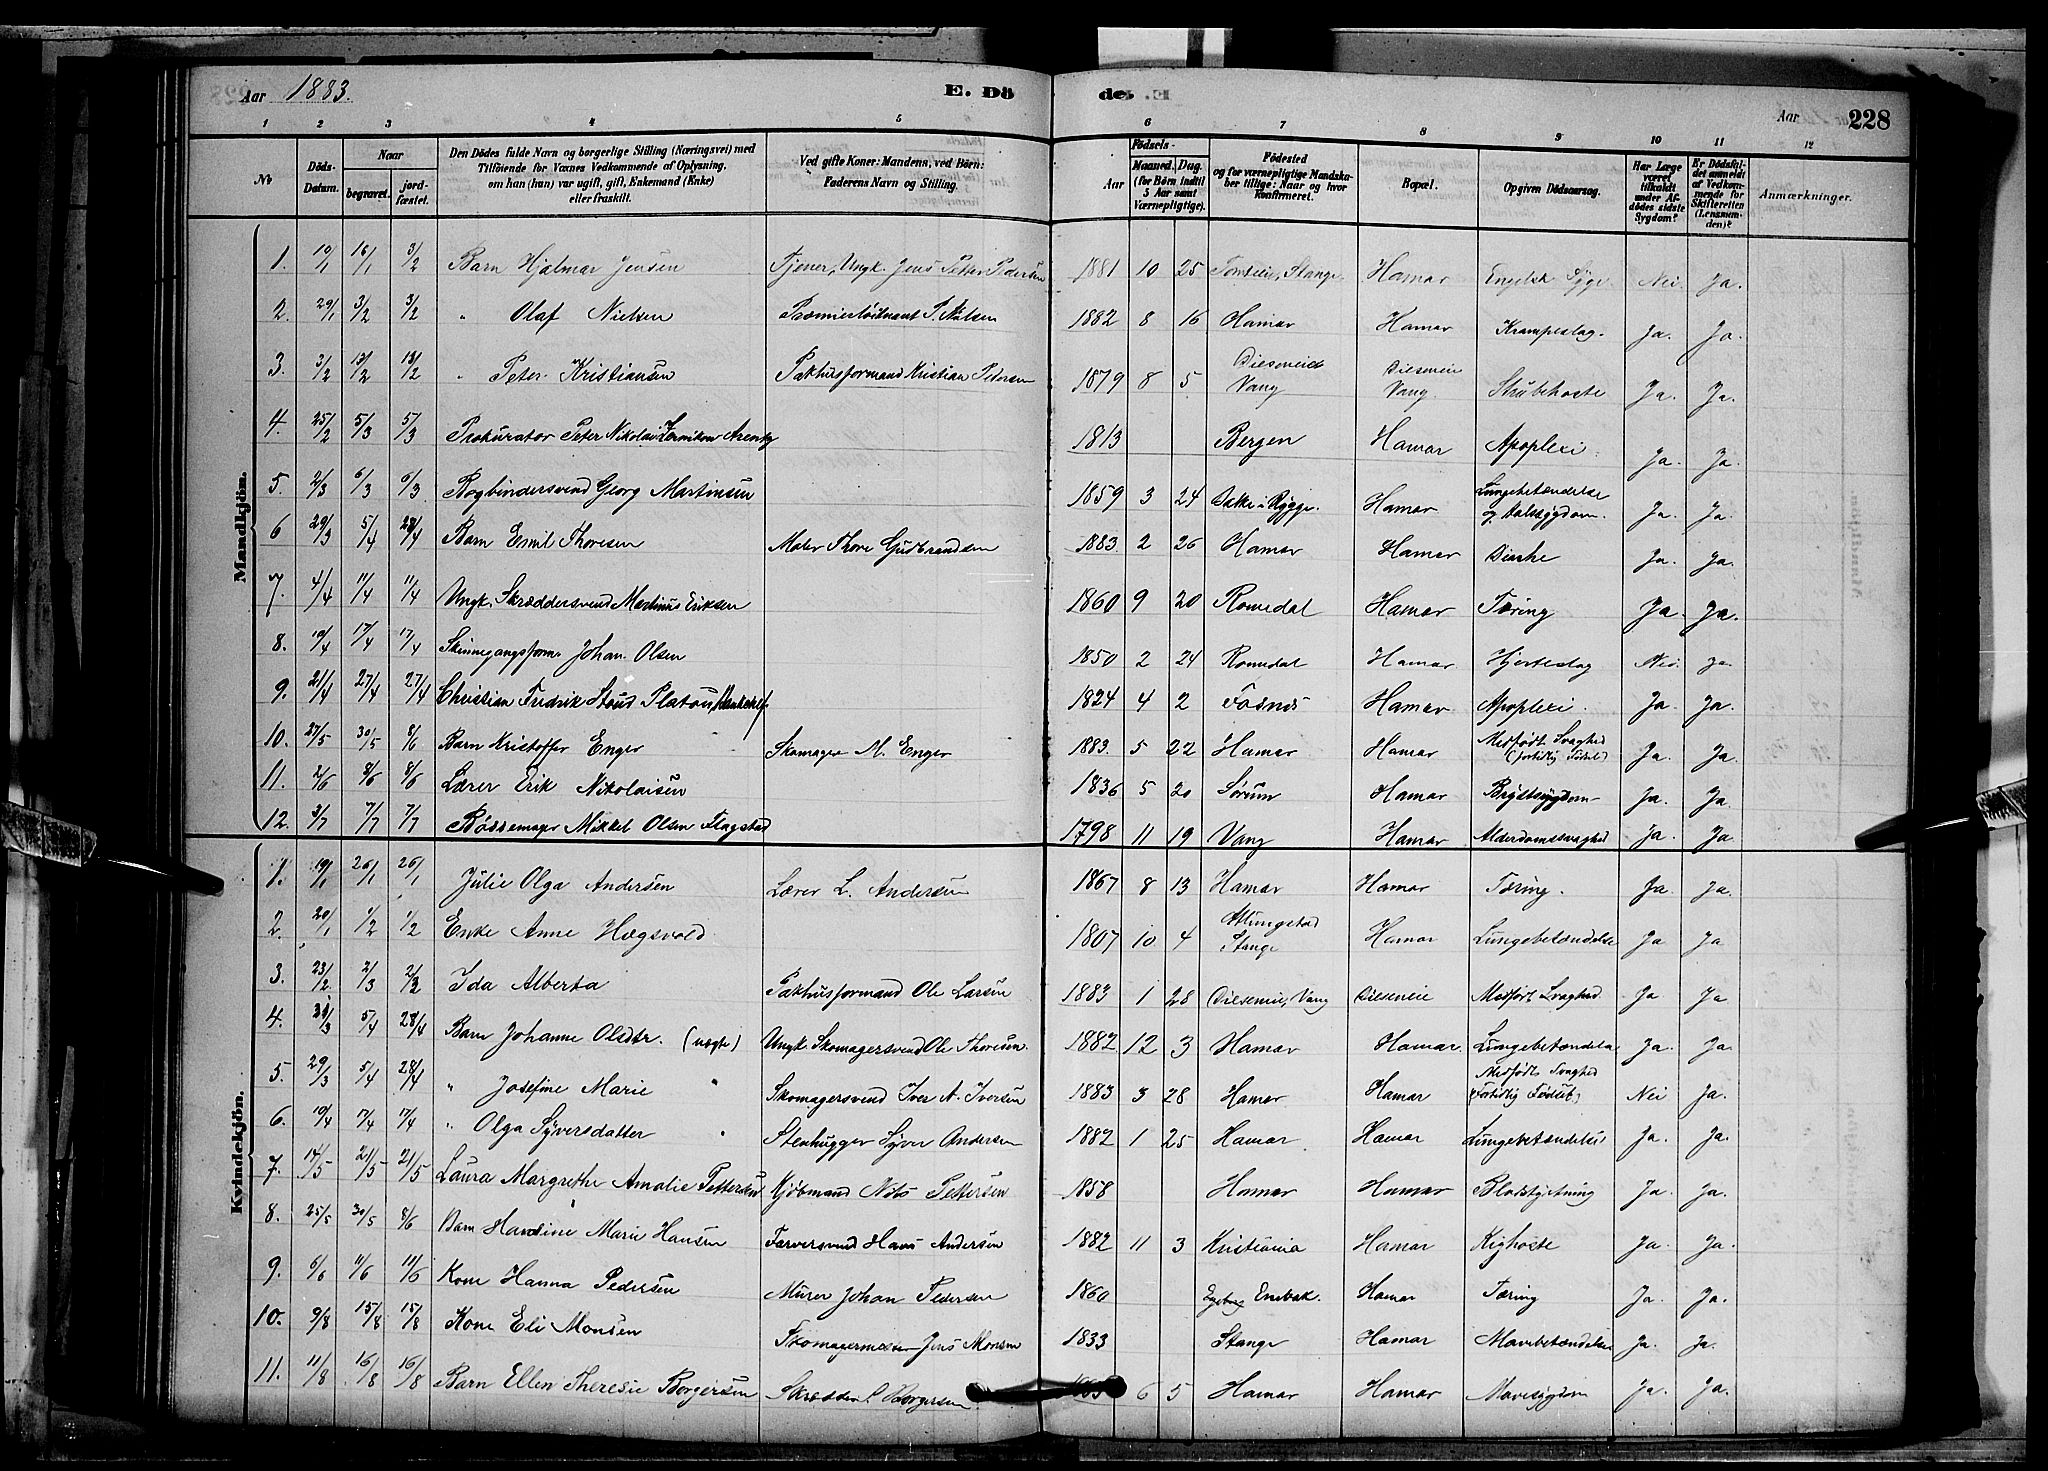 Aar 1883. E. Dö de. Aar 228
1 2 3 4 5 6 7 8 9 10 11 12
No
Döds-Datum.
Naar
begravet. jordfæstet.
Den Dödes fulde Navn og borgerlige Stilling (Næringsvei) med
Tilföiende for Voxnes Vedkommende af Oplysning,
om han (hun) var ugift, gift, Enkemand (Enke)
eller fraskilt.
Ved gifte Koner: Mandens, ved Börn:
Faderens Navn og Stilling.
Födsels-
Aar Maaned. Dag.
(for Börn indtil
5 Aar samt
Værnepligtige).
Födested
og for værnepligtige Mandskaber tillige: Naar og hvor
Konfirmeret.
Bopæl.
Opgiven Dödsaarsag.
Har Læge
været
tilkaldt
under Afdödes sidste
Sygdom?
Er Dödsfaldet anmeldt
af Vedkommende for
Skifteretten
(Lensmanden)?
Anmærkninger.
Mandkjön.
1. 10/1 16/1 3/2 Barn Hjalmar Jensen Tjener, Ungk. Jens Petter Pedersen 1881 10 25 Stange Hamar Engelsk Syge Nei Ja.
2. 29/1 3/2 3/2 " Olaf Nielsen Premierløitnant P. Nielsen 1882 8 16 Hamar Hamar Krampeslag. Ja. Ja.
3. 3/2 13/2 13/2 " Peter Kristiansen Pakhusformand Kristian Pedersen 1879 8 5 Diseneie Vang Diseneie Vang. Strubehoste Ja. Ja.
4. 25/2 5/3 5/3 Prokurator Peter Nikolai Arentz 1813 Bergen Hamar Apoplexi Ja. Ja.
5. 2/3 6/3 6/3 Bogbindersvend Georg Martinsen 1859 3 24 Rygge. Hamar Lungebetændelse og Halssygdom. Ja. Ja.
6 29/3 5/4 28/4 Barn Emil Thoresen Maler Thore Gudbrandsen 1883 2 26 Hamar Hamar Diarhe Ja. Ja.
7. 4/4 11/4 11/4 Ungk. Skræddersvend Martinus Eriksen 1860 9 20 Romedal Hamar Tæring Ja. Ja.
8. 10/4 17/4 17/4 Skinnegangsform. Johan Olsen 1850 2 24 Romedal Hamar Hjerteslag Nei Ja.
9. 21/4 27/4 27/4 Christian Fredrik Stoud Platou 1824 4 2 Fosnes Hamar Apoplexi. Ja. Ja.
10. 27/5 30/5 8/6 Barn Kristoffer Enger Skomager M. Enger 1883. 5 22 Hamar Hamar Medfødt Svaghed (fortidlig Fødsel) Ja. Ja.
11. 2/6 8/6 8/6 Lærer Erik Nikolaisen 1836 5 20 Sørum Hamar Brystsygdom Ja. Ja.
12. 3/7 7/7 7/7 Bøssemager Mikkel Olsen Flagstad 1798 11 19 Vang Hamar Alderdomssvaghed Ja. Ja.
Kvindekjön.
1. 19/1 26/1 26/1 Julie Olga Andersen Lærer L. Andersen 1867 8 13 Hamar Hamar Tæring. Ja Ja.
2. 20/1 1/2 1/2 Enke Anne Hægsvold 1807 10 4 Stange Hamar Lungebetændelse Ja Ja
3. 23/2 2/3 2/3 Ida Alberta Pakhusformand Ole Larsen 1883 1 28 Diseneie, Vang Diseneie Medfødt Svaghed Ja Ja
4. 5/4 28/4 Barn Johanne Olsdtr. (uægte) Ungk. Skomagersvend Ole Thoresen. 1882 12 3 Hamar Hamar. Lungebetændelse Ja. Ja.
5. 29/3 5/4 28/4 " Josefine Marie " Skomagersvend Iver A. Iversen 1883 3 28 Hamar Hamar Medfødt Svaghed (Fortidlig Fødsel) Nei Ja.
6. 10/4 17/4 17/4 " Olga Syversdatter " Stenhugger Syver Andersen 1882 1 25 Hamar Hamar Lungebetændelse Ja. Ja.
7. 14/5 21/5 21/5 Laura Margrethe Amalie Pettersen Kjøbmand Nils Pettersen 1858 Hamar Hamar Blodstyrtning Ja. Ja.
8. 25/5 30/5 8/6 Barn Handine Marie Hansen Farversvend Hans Andersen 1882 11 3 Kristiania Hamar Kighoste Ja. Ja.
9. 6/6 11/6 11/6 Kone Hanna Pedersen Murer Johan Pedersen 1860 Enebak. Hamar Tæring Ja. Ja.
10. 9/8 15/8 15/8 Kone Eli Monsen Skomagermester Jens Monsen 1833 Stange Hamar Mavebetændelse Ja. Ja.
11. 11/8 16/8 16/8 Barn Ellen Theresie Borgersen Skrædder Borgersen. 6 5 Hamar Hamar Mavesygdom Ja. Ja.